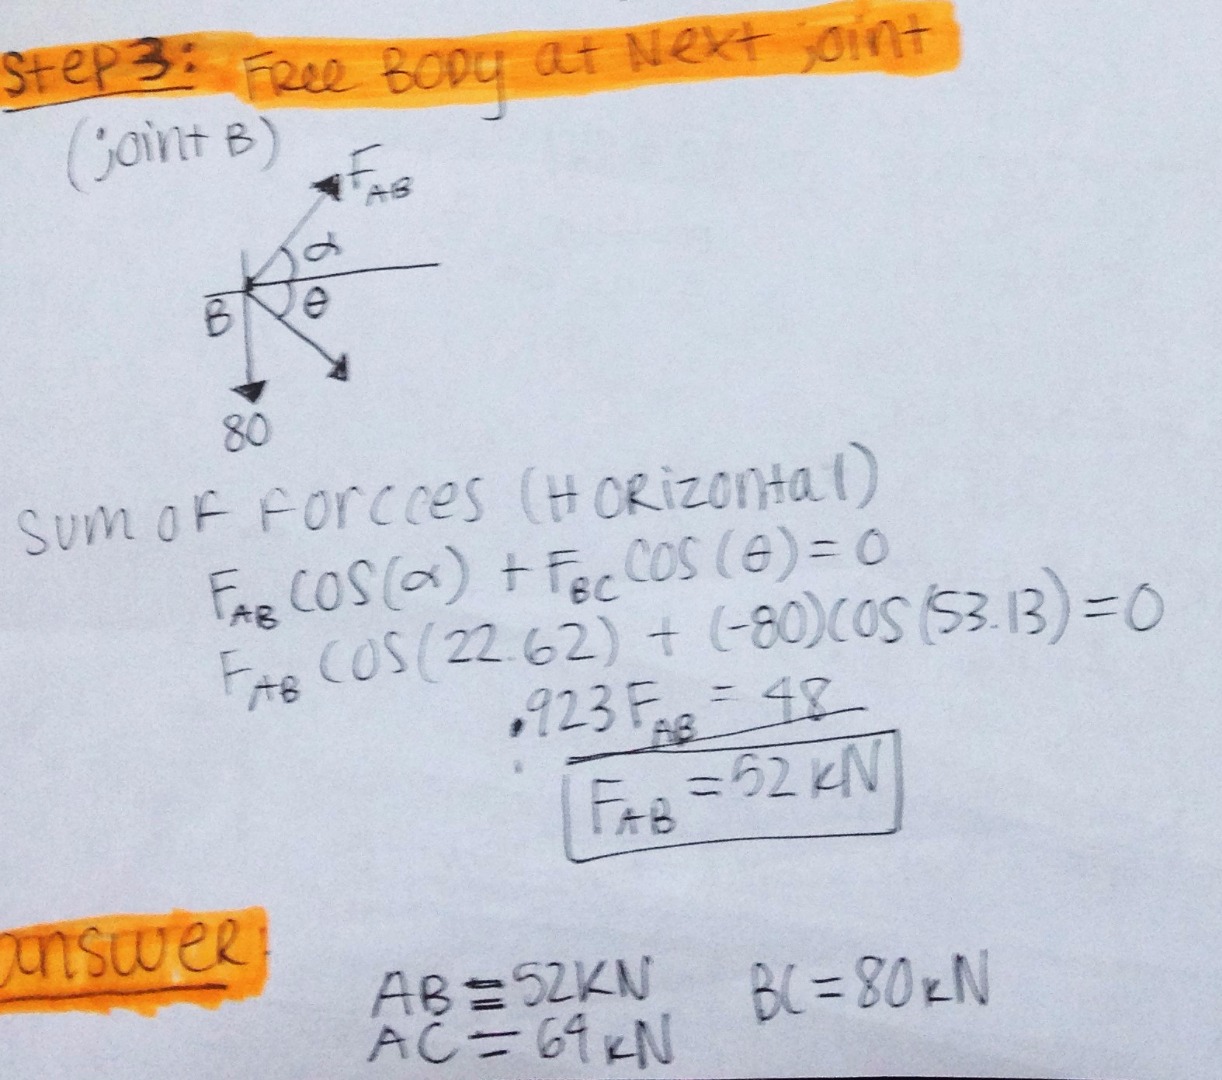 Step 3: Free Body at Next joint
(joint B)
F_AB
α
B θ
80
Sum of Forcces (Horizontal)
F_AB cos(α) + F_BC cos(θ) = 0
F_AB cos(22.62) + (-80)cos(53.13) = 0
.923 F_AB = 48
F_AB = 52 kN
answer:
AB = 52KN BC = 80kN
AC = 64 kN